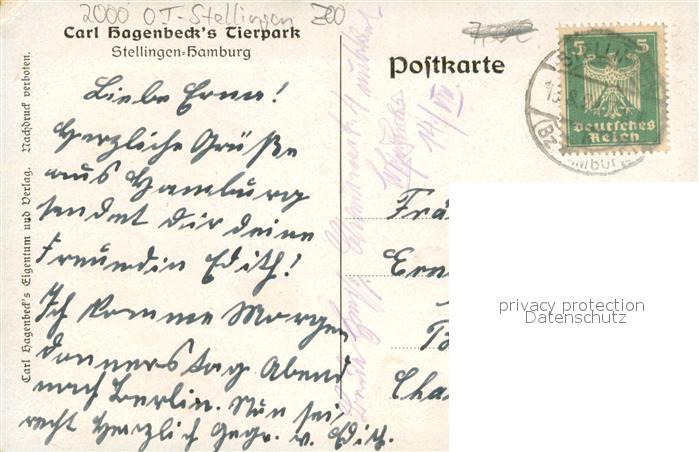 2000 OT-Stellingen Zoo
Carl Hagenbeck's Tierpark
Stellingen-Hamburg
Postkarte
5 5
Deutsches
Reich
Carl Hagenbeck's Eigentum und Verlag. Nachdruck verboten.
Liebe Erna!
Herzliche Grüße
aus Hamburg
sendet dir deine
Freundin Edith!
Ich komme Morgen
Donnerstag Abend
nach Berlin. Nun sei
recht herzlich gegr. v. Edith.
14/VIII
Frä
Ern
Cha
privacy protection
Datenschutz